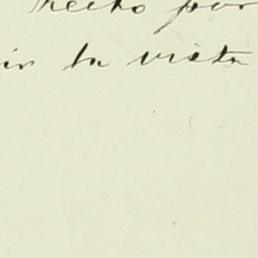 hecho por
in la vista